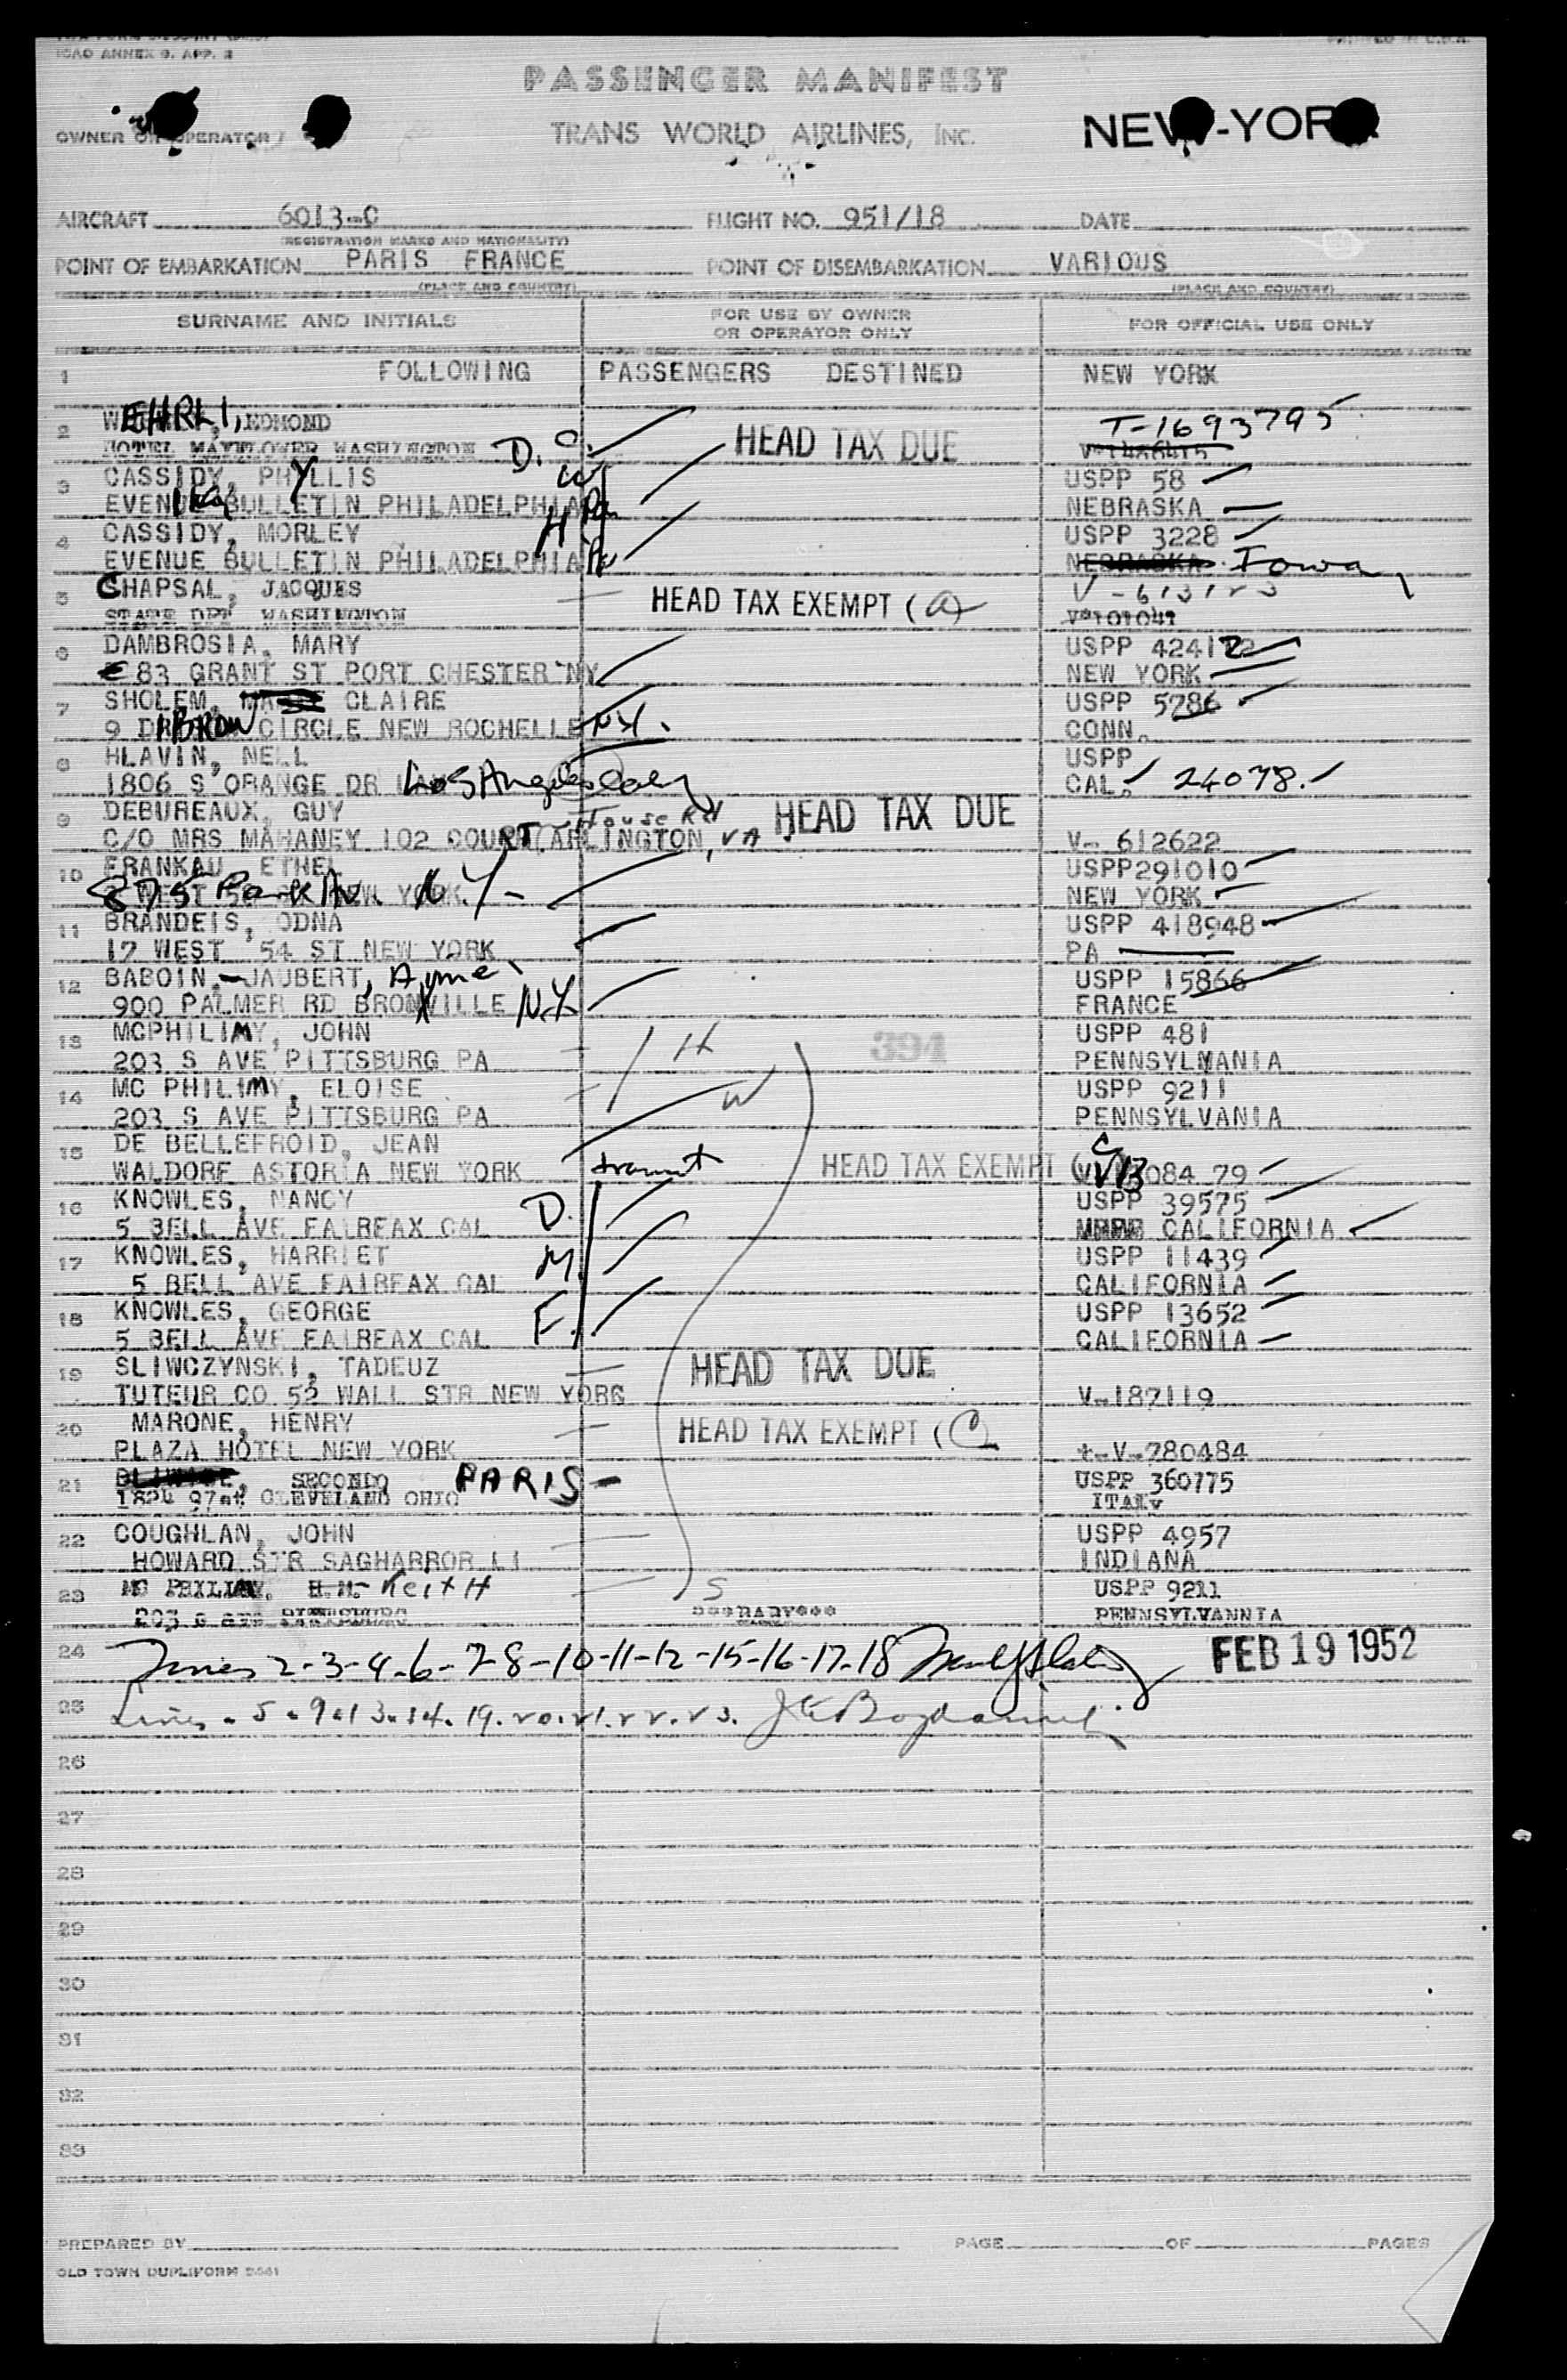 ICAO ANNEX 9, APP. 2
PASSENGER MANIFEST
OWNER OR OPERATOR TRANS WORLD AIRLINES, INC. NEW-YORK
AIRCRAFT 6013-C FLIGHT NO. 951/18 DATE
(REGISTRATION MARKS AND NATIONALITY)
POINT OF EMBARKATION PARIS FRANCE POINT OF DISEMBARKATION VARIOUS
(PLACE AND COUNTRY) (PLACE AND COUNTRY)
SURNAME AND INITIALS FOR USE BY OWNER OR OPERATOR ONLY FOR OFFICIAL USE ONLY
1 FOLLOWING PASSENGERS DESTINED NEW YORK
2 WEHRLI, EDMOND HEAD TAX DUE T-1693795
HOTEL MAYFLOWER WASHINGTON D.C.
3 CASSIDY, PHYLLIS W USPP 58
EVENING BULLETIN PHILADELPHIA Pa NEBRASKA
4 CASSIDY, MORLEY H USPP 3228
EVENUE BULLETIN PHILADELPHIA Pa NEBRASKA Iowa
5 CHAPSAL, JACQUES HEAD TAX EXEMPT (a)
STATE DPT WASHINGTON
6 DAMBROSIA, MARY USPP 424172
83 GRANT ST PORT CHESTER NY NEW YORK
7 SHOLEM, CLAIRE USPP 5786
9 CIRCLE NEW ROCHELLE N.Y. CONN.
8 HLAVIN, NELL USPP
1806 S ORANGE DR Los Angeles CAL. 24078
9 DEBUREAUX, GUY House Rd HEAD TAX DUE
C/O MRS MAHANEY 102 COURT ARLINGTON, VA V- 612622
10 FRANKAU, ETHEL USPP291010
875 Park Av. N.Y. NEW YORK
11 BRANDEIS, ODNA USPP 418948
17 WEST 54 ST NEW YORK PA
12 BABOIN-JAUBERT, Ayme USPP 15866
900 PALMER RD BRONXVILLE N.Y. FRANCE
13 MCPHILIMY, JOHN H 394 USPP 481
203 S AVE PITTSBURG PA PENNSYLVANIA
14 MC PHILIMY, ELOISE W USPP 9211
203 S AVE PITTSBURG PA PENNSYLVANIA
15 DE BELLEFROID, JEAN
WALDORF ASTORIA NEW YORK transit HEAD TAX EXEMPT 084 79
16 KNOWLES, NANCY D. USPP 39575
5 BELL AVE FAIRFAX CAL CALIFORNIA
17 KNOWLES, HARRIET M. USPP 11439
5 BELL AVE FAIRFAX CAL CALIFORNIA
18 KNOWLES, GEORGE F. USPP 13652
5 BELL AVE FAIRFAX CAL CALIFORNIA
19 SLIWCZYNSKI, TADEUZ HEAD TAX DUE
TUTEUR CO 52 WALL STR NEW YORG V-187119
20 MARONE, HENRY HEAD TAX EXEMPT (C
PLAZA HOTEL NEW YORK t-V-280484
21 SECONDO PARIS USPP 360775
1824 97st CLEVELAND OHIO ITALY
22 COUGHLAN, JOHN USPP 4957
HOWARD STR SAGHARROR LI INDIANA
23 MC PHILIMY, H.M. Keith S USPP 9211
203 S AVE PITTSBURG ***BABY*** PENNSYLVANNIA
24 Lines 2-3-4-6-7-8-10-11-12-15-16-17-18 FEB 19 1952
25 Lines - 5-9-13-14-19-20-21-22-23.
26
27
28
29
30
31
32
33
PREPARED BY PAGE OF PAGES
OLD TOWN DUPLIFORM